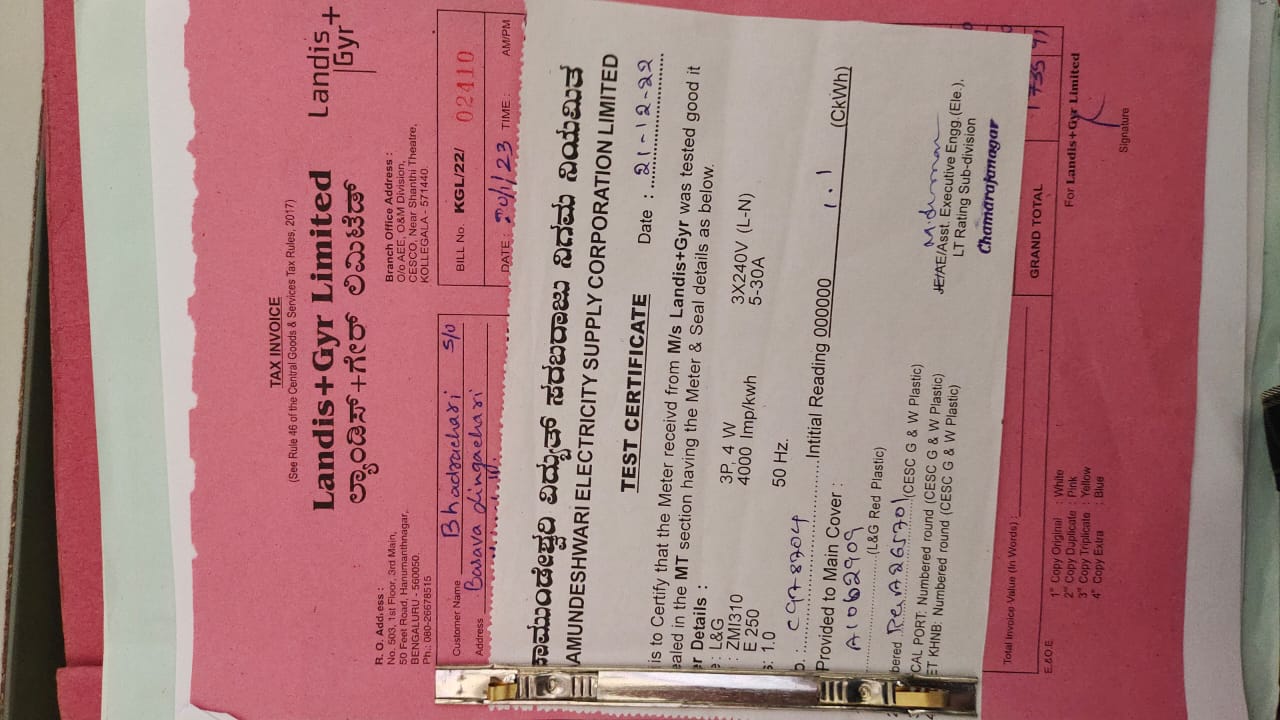 TAX INVOICE
(See Rule 46 of the Central Goods & Services Tax Rules, 2017)
Landis+Gyr Limited
ಲ್ಯಾಂಡಿಸ್+ಗೇರ್ ಲಿಮಿಟೆಡ್
Landis
Gyr+
R. O. Address :
No. 503, 1st Floor, 3rd Main,
50 Feet Road, Hanumanthnagar,
BENGALURU - 560050.
Ph.: 080-26678515
Branch Office Address :
O/o AEE, O&M Division,
CESCO, Near Shanthi Theatre,
KOLLEGALA - 571440.
Customer Name Bhadrachari S/o
Address Basava Lingachari
BILL No. KGL/22/ 02410
DATE : 20/1/23 TIME : AM/PM
ಾಮುಂಡೇಶ್ವರಿ ವಿದ್ಯುತ್ ಸರಬರಾಜು ನಿಗಮ ನಿಯಮಿತ
AMUNDESHWARI ELECTRICITY SUPPLY CORPORATION LIMITED
TEST CERTIFICATE
Date : 21-12-22
is to Certify that the Meter receivd from M/s Landis+Gyr was tested good it
ealed in the MT section having the Meter & Seal details as below.
er Details :
: L&G 3P 4 W 3X240V (L-N)
: ZMI310 4000 Imp/kwh 5-30A
E 250
: 1.0 50 Hz.
Intitial Reading 000000 1.1 (CkWh)
Provided to Main Cover :
A1062909 (L&G Red Plastic)
bered A265701 (CESC G & W Plastic)
CAL PORT: Numbered round (CESC G & W Plastic)
ET KHNB: Numbered round (CESC G & W Plastic)
JE/AE/Asst. Executive Engg.(Ele.),
LT Rating Sub-division
Chamarajanagar
GRAND TOTAL 1735
Total Invoice Value (In Words) :
E.&O.E.
For Landis+Gyr Limited
Signature
1" Copy Original : White
2" Copy Duplicate : Pink
3" Copy Triplicate : Yellow
4" Copy Extra : Blue